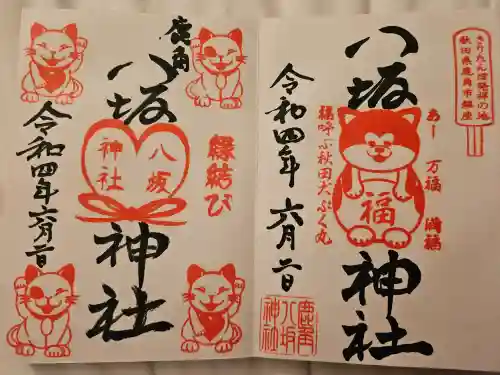 きりたんぽ発祥の地
秋田県鹿角市鎮座
八坂神社
あー 万福 満福
福
福呼ぶ秋田犬ふく丸
令和四年 六月二日
鹿角
八坂
神社
鹿角
八坂神社
縁結び
八坂
神社
令和四年六月二日